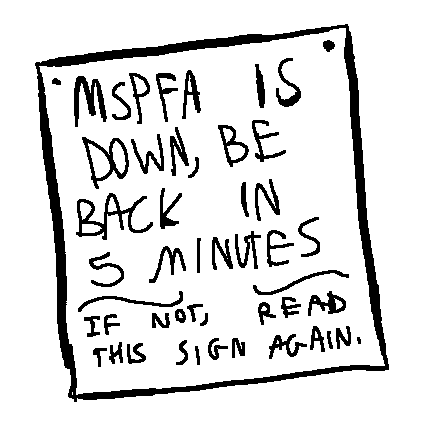 MSPFA IS
DOWN, BE
BACK IN
5 MINUTES
IF NOT, READ
THIS SIGN AGAIN.